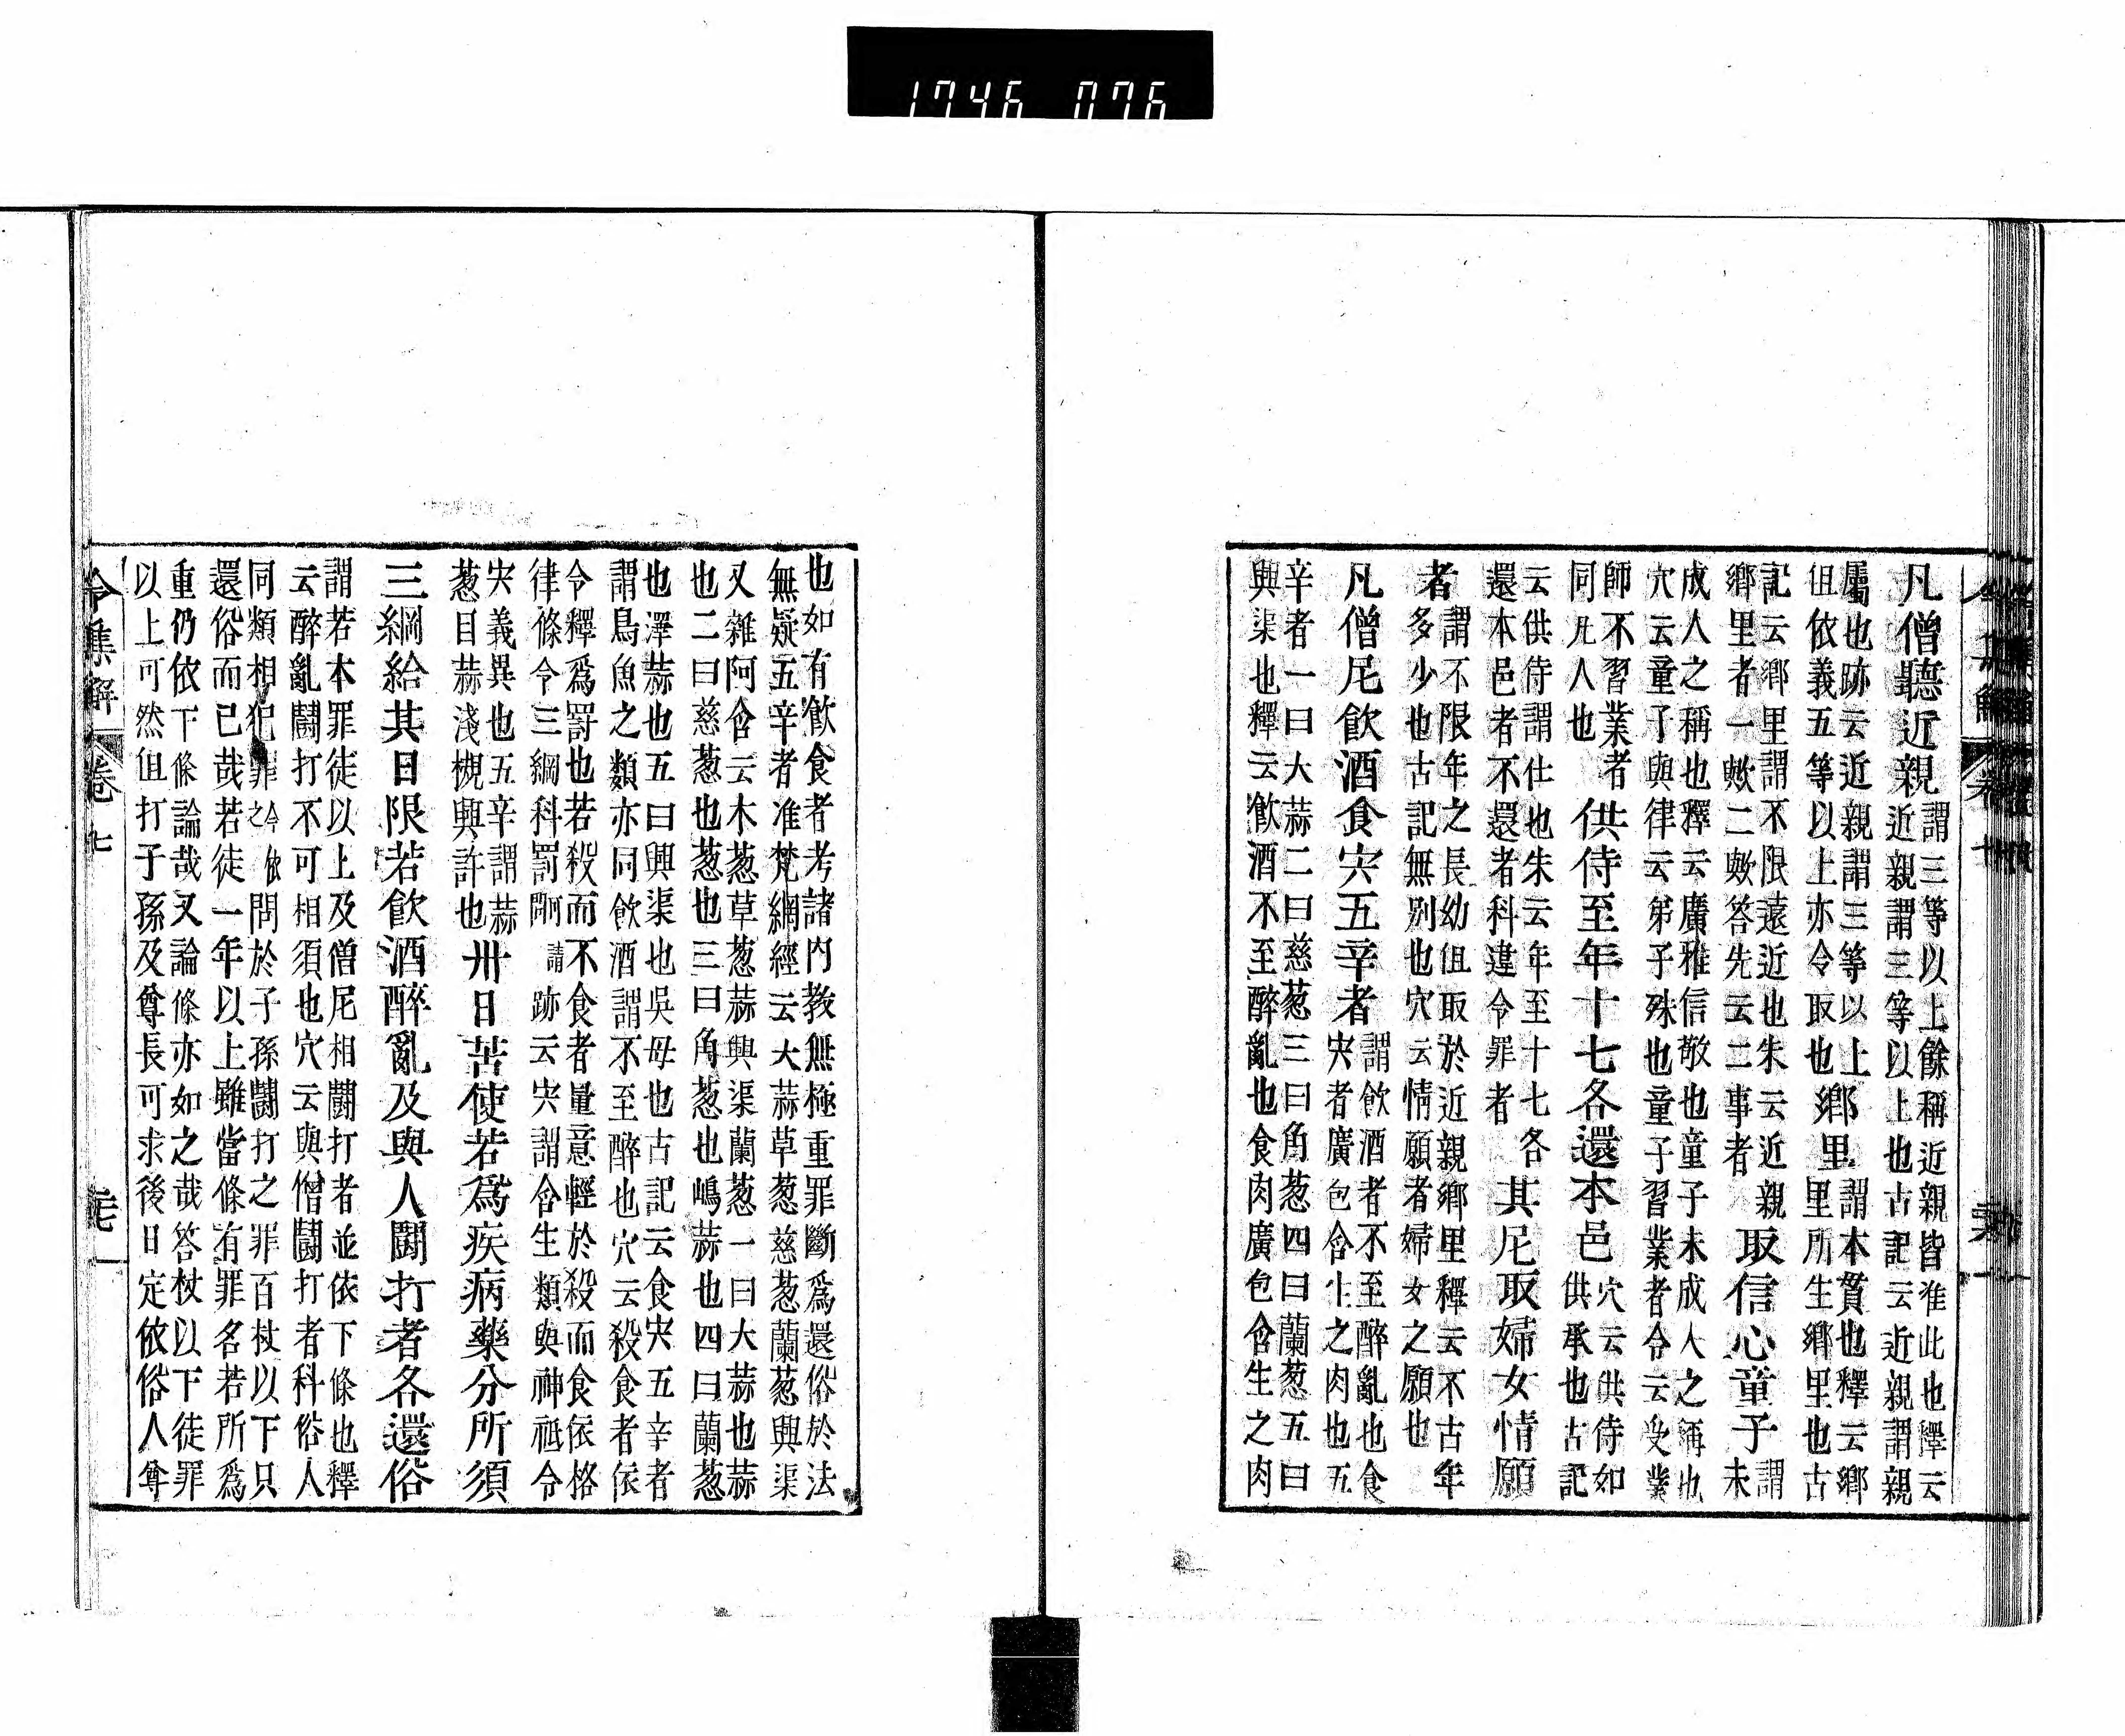 1746 076
凡僧聽近親謂三等以上餘稱近親皆准此也釋云
近親謂三等以上也古記云近親謂親
屬也跡云近親謂三等以上
但依義五等以上亦令取也
鄉里謂本貫也釋云鄉
里所生鄉里也古
記云鄉里謂不限遠近也朱云近親
鄉里者一歟二歟答先云二事者
取信心童子謂
未
成人之稱也釋云廣雅信敬也童子未成人之稱也
穴云童子與律云弟子殊也童子習業者令云受業
師不習業者
同凡人也
供侍至年十七各還本邑穴云供侍如
供承也古記
云供侍謂仕也朱云年至十七各
還本邑者不還者科違令罪者
其尼取婦女情願
者謂不限年之長幼但取於近親鄉里釋云不古年
多少也古記無別也穴云情願者婦女之願也
凡僧尼飲酒食宍五辛者謂飲酒者不至醉亂也食
宍者廣包含生之肉也五
辛者一曰大蒜二曰慈葱三曰角葱四曰蘭葱五曰
興渠也釋云飲酒不至醉亂也食肉廣包含生之肉
也如有飲食者考諸內教無極重罪斷為還俗於法
無疑五辛者准梵網經云大蒜草葱慈葱蘭葱興渠
又雜阿含云木葱草葱蒜興渠蘭葱一曰大蒜也蒜
也二曰慈葱也葱也三曰角葱也嶋蒜也四曰蘭葱
也澤蒜也五曰興渠也吳母也古記云食宍五辛者
謂鳥魚之類亦同飲酒謂不至醉也穴云殺食者依
令釋爲罸也若殺而不食者量意輕於殺而食依格
律條令三綱科罰請跡云宍謂含生類與神祗令
宍義異也五辛謂蒜
葱目蒜淺槻興許也
卅日苦使若爲疾病藥分所須
三綱給其日限若飲酒醉亂及與人鬪打者各還俗
謂若本罪徒以上及僧尼相鬪打者並依下條也釋
云醉亂鬪打不可相須也穴云與僧鬪打者科俗人
同類相犯罪之問於子孫鬪打之罪百杖以下只
還俗而已哉若徒一年以上雖當條有罪名若所爲
重仍依下條論哉又論條亦如之哉答杖以下徒罪
以上可然但打子孫及尊長可求後日定依俗人尊
令集解 卷七